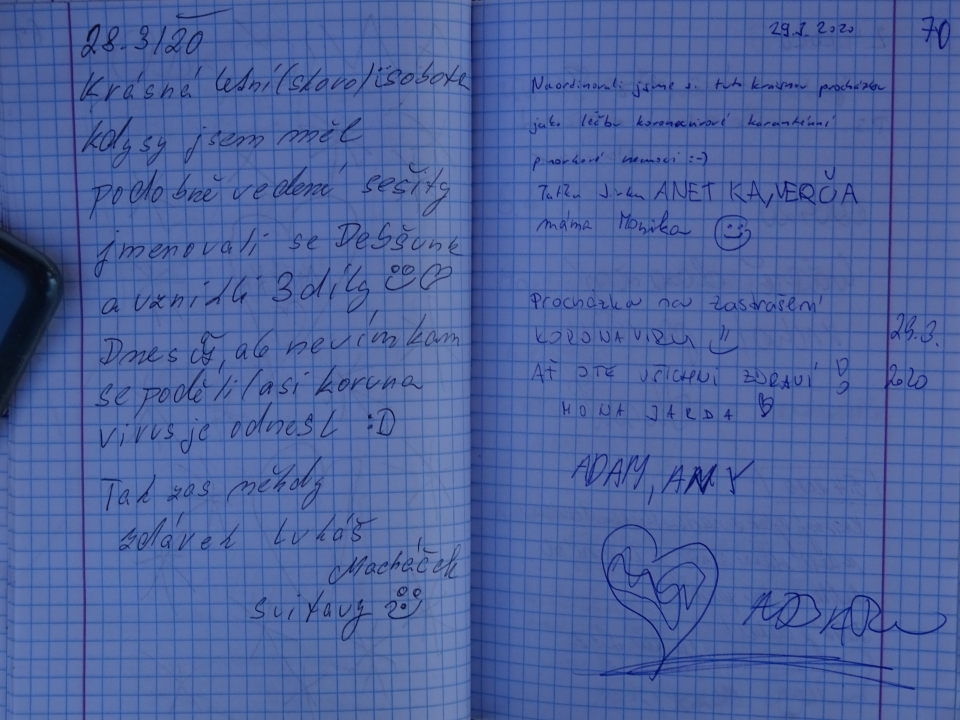 28.3/20
Krásná letní (skoro) sobota
kdysy jsem měl
podobně vedené sešity
jmenovali se
a vznikli 3 díly
Dnes již, ale nevím kam
se poděli (asi koruna
virus je odnesl :D
Tak zas někdy
zdárek Lukáš
Macháček
Svitavy
29.3.2020
70
Naordinovali jsme si tuto krásnou procházku
jako léčbu koronavirové karanténní
ponorkové nemoci :-)
Taťka Jirka ANETKA, VERČA
máma Monika
Procházka na zastrašení
KORONAVIRU
29.3.
AŤ JSTE VŠICHNI ZDRAVÍ
2020
HONA JARDA
ADAM, AMY